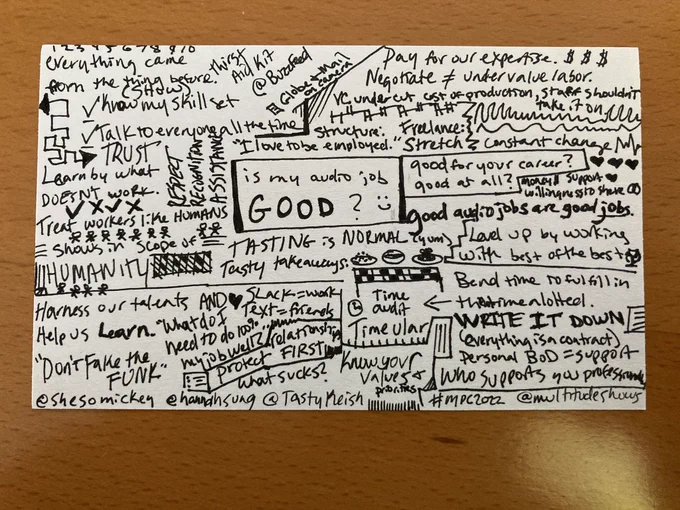 1 2 3 4 5 6 7 8 9 10
everything came
from the thing before.
(SHOW)
Thirst
Aid Kit
@Buzzfeed
Globe + Mail
on camera
✓ Know my skillset
✓ Talk to everyone all the time
TRUST
RESPECT
RECOGNITION
ASSISTANCE
Learn by what
DOESN'T WORK.
✓ X ✓ X
Treat workers like HUMANS
= shows in scope of
HUMANITY
Pay for our expertise. $ $ $
Negotiate ≠ undervalue labor.
VC undercut cost of production, staff shouldn't
take it on.
Structure: Freelance:
"I love to be employed." Stretch & constant change
is my audio job
GOOD?
good for your career?
good at all?
money + support
willingness to share
good audio jobs are good jobs.
TASTING is NORMAL (yum)
Tasty takeaways:
Level up by working
with best of the best
Harness our talents AND ♥
Help us Learn.
Slack = work
Text = friends
"What do I
need to do 100%...
my job well?"
relationships
Protect FIRST
"Don't Fake the
FUNK"
what sucks?
Time
audit
Timeular
Know your
values +
priorities
Bend time to fulfill in
← that time allotted.
WRITE IT DOWN
(everything is a contract)
Personal BoD = support
Who supports you professionally
@shesomickey @hannahsung @TastyKeish #MPC2022 @multitudeshows